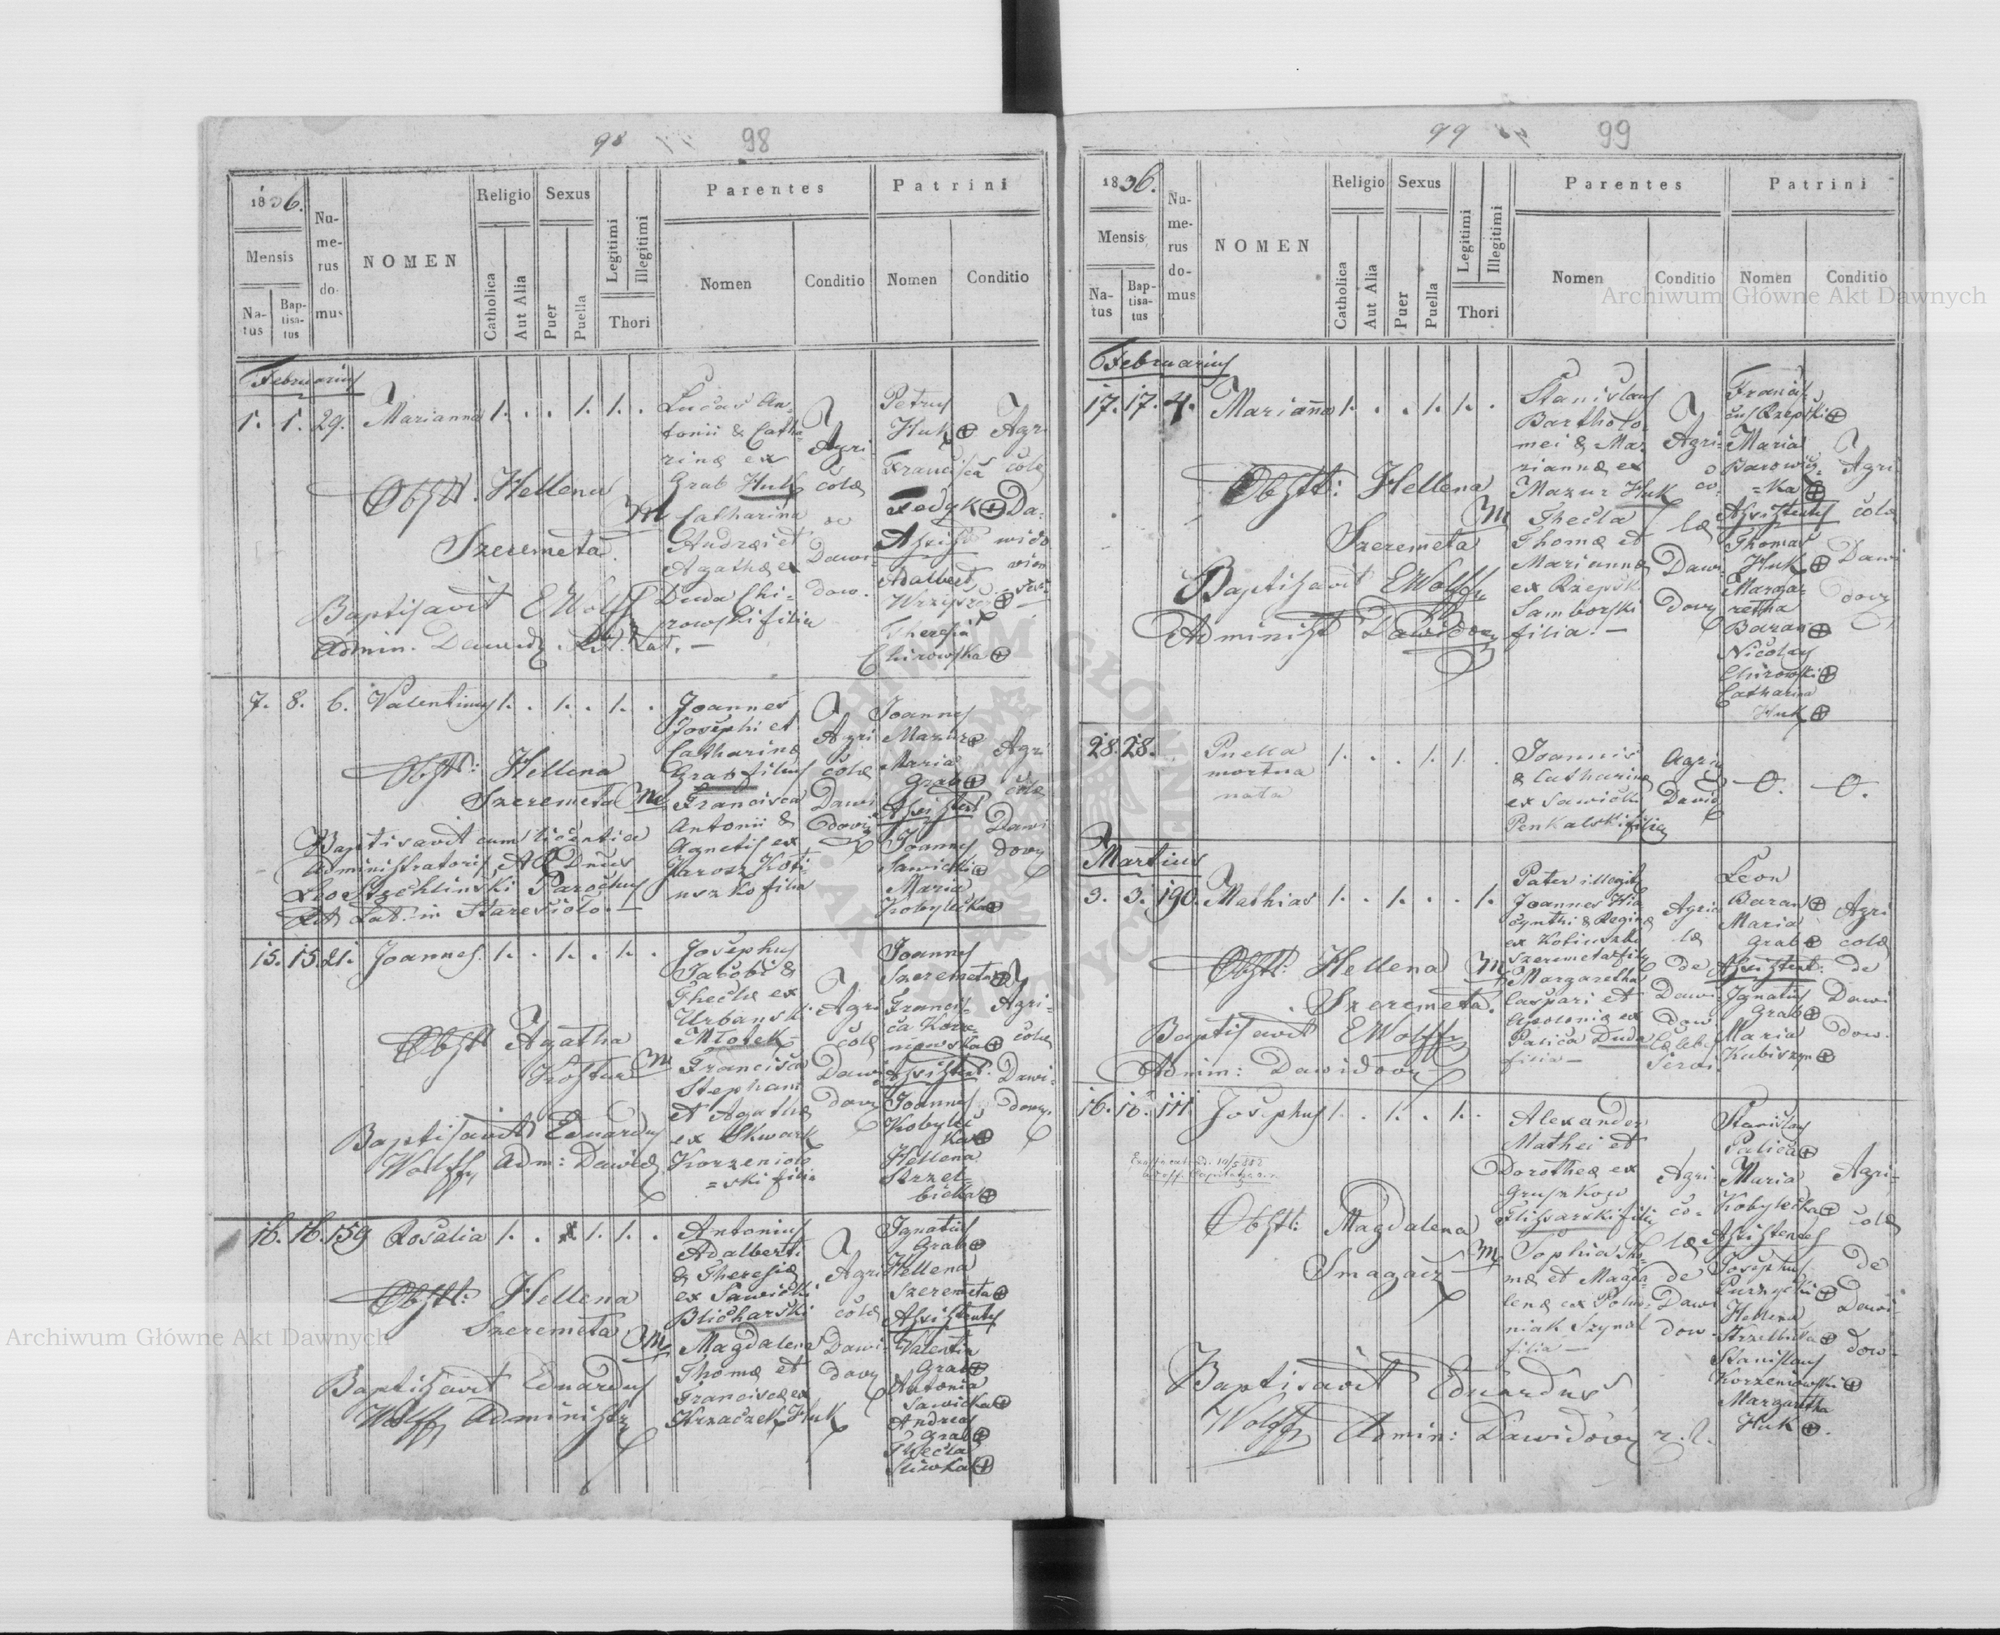 98 98
1836.
Mensis
Natus
Baptisatus
Numerus domus
NOMEN
Religio
Catholica
Aut Alia
Sexus
Puer
Puella
Legitimi
Illegitimi
Thori
Parentes
Nomen
Conditio
Patrini
Nomen
Conditio
Februarius
1. 1. 29. Marianna 1. . . 1. 1. .
Obstt. Hellena
Szeremeta.
Baptisavit EWolff
Admin. Dawid. Rit. Lat. —
Lucas An-
tonii & Catha-
rinæ ex
Grab Huk
Catharina
Andræi et
Agathæ ex
Duda Chi-
rowski filia
Agri
colæ
de
Dawi-
dow.
Petrus
Huk
Francisca
Fedyk
Assist
Adalbert
Theresia
Chirowska
Agri
colæ
Da-
wido
7. 8. 6. Valentinus 1. . 1. . 1. .
Obstt: Hellena
Szeremeta
Baptisavit cum licentia
Administratoris
Parochus
Rit Lat. in Staresioło. —
Joannes
Josephi et
Catharinæ
Grab filius
Francisca
Antonii &
Agnetis ex
Koti-
uszko filia
Agri
colæ
Dawi
dovy
Joannes
Mazur
Maria
Grab
Assistent
Joannes
Sawicki
Maria
Kobylecka
Agri
colæ
Dawi
dovy
15. 15 21. Joannes. 1. . 1. . 1. .
Obstt Agatha
Baptisavit Eduardus
Wolff Adm: Dawid
Josephus
Jacobi &
Theclæ ex
Urbanski
Młotek
Francisca
Stephani
et Agathæ
ex Skwark
Korzeniow
=ski filia
Agri
colæ
Dawi
dovy
Joannes
Szeremeta
Francis-
ca Korze-
niowska
Assistent.
Joannes
Kobylec
Hellena
Strzel-
bicka
Agri-
colæ
Dawi-
dovy.
16. 16. 159 Rosalia 1. . . 1. 1. .
Obstt: Hellena
Szeremeta
Baptisavit Eduardus
Wolff Administr
Antonius
Adalberti
& Theresiæ
ex Sawicki
Blicharski
Magdalena
Thomæ et
Franciscæ ex
Krzaczek Huk
Agri
colæ
Dawi-
dovy
Ignatius
Grab
Hellena
Szeremeta
Assistentes
Valentin
Grab
Antonia
Sawicka
Andreas
Grab
Thecla
Sliwka
99 99
1836.
Mensis
Natus
Baptisatus
Numerus domus
NOMEN
Religio
Catholica
Aut Alia
Sexus
Puer
Puella
Legitimi
Illegitimi
Thori
Parentes
Nomen
Conditio
Patrini
Nomen
Conditio
Februarius
17. 17. 4. Marianna 1. . . 1. 1. .
Obstt: Hellena
Szeremeta
Baptisavit EWolff
Administ Dawidovy
Stanislaus
Bartholo-
mei & Ma-
riannæ ex
Mazur Huk
Thecla
Thomæ et
Mariannæ
ex Rzepski
Samborski
filia. —
Agri-
co-
læ
Dawi
dovy
Francis-
cus Rzepski
Maria
Assistentes
Thomas
Huk
Marga-
retha
Baran
Nicolaus
Chirowski
Catharina
Huk
Agri
colæ
Dawi
dovy
28. 28. Puella 1. . . 1. 1. .
mortua
nata
Joannis
& Catharinæ
ex Sawicki
Penkalski filia
Agric
Dawid
O. O.
Martius
3. 3. 190. Mathias 1. . 1. . . 1.
Obstt: Hellena
Szeremeta.
Baptisavit EWolff
Admin: Dawidovy
Pater illegit
Joannes Hia
cynthi & Reginæ
ex Kotiuszko
Szeremeta filius
Margaretha
Caspari et
Apoloniæ ex
Palica Duda
filia —
Agric
læ
de
Dawi
dow
Leon
Baran
Maria
Grab
Assistent:
Ignatius
Grab
Maria
Kubiszyn
Agri
colæ
de
Dawi
dow.
16. 16. 111. Josephus 1. . 1. . 1. .
Obstt: Magdalena
Smagacz
Baptisavit Eduardus
Wolff Admin: Dawidovy
Alexander
Mathei et
Dorotheæ ex
Gruszkow
Slissarski filius
Sophia Tho-
mæ et Magda-
lenæ ex Polus-
niak Szynal
filia —
Agri-
co-
læ
de
Dawi
dow.
Stanislaus
Palica
Maria
Kobylecka
Assistentes
Josephus
Hellena
Strzelbicka
Stanislaus
Korzeniowski
Margaretha
Huk
Agri-
colæ
de
Dawi
dow-
Archiwum Główne Akt Dawnych
Archiwum Główne Akt Dawnych
ARCHIWUM GŁÓWNE AKT DAWNYCH